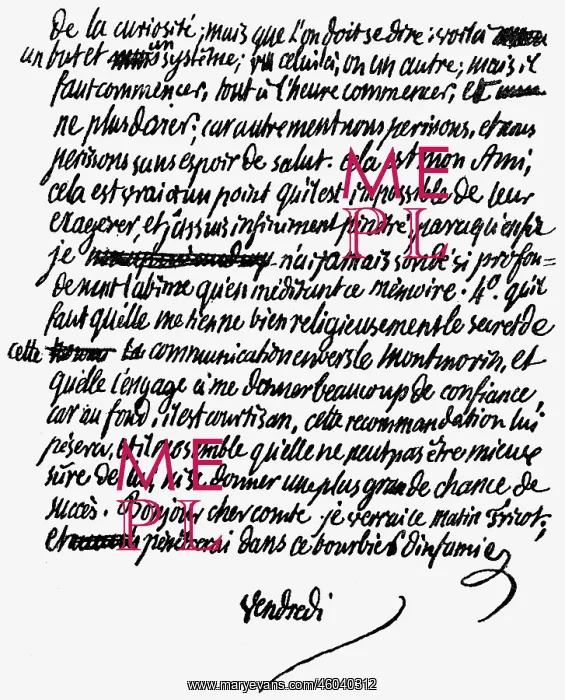 De la curiosité; mais que l'on doit se dire: voilà
un but et un système; celui-ci, ou un autre; mais il
faut commencer, tout à l'heure commencer, et
ne plus varier; car autrement nous perissons, et nous
perissons sans espoir de salut. cela est mon Ami,
cela est vrai à un point qu'il est impossible de leur
exagerer, et j'en suis infiniment penetré parce qu'enfin
je n'ai jamais sondé si profon=
dement l'abime qu'en meditant ce mémoire: 4º. qu'il
faut qu'elle me tienne bien religieusement le secret de
cette communication envers le Montmorin, et
qu'elle l'engage à me donner beaucoup de confiance,
car au fond, il est courtisan, cette recommandation lui
pésera, et il me semble qu'elle ne peut pas être mieux
sûre de lui, ni se donner une plus grande chance de
succès. Bonjour cher comte. je verrai ce matin Tricot,
et penetrerai dans ce bourbier d'infamie
Vendredi
ME
PL
ME
PL
www.maryevans.com/46040312